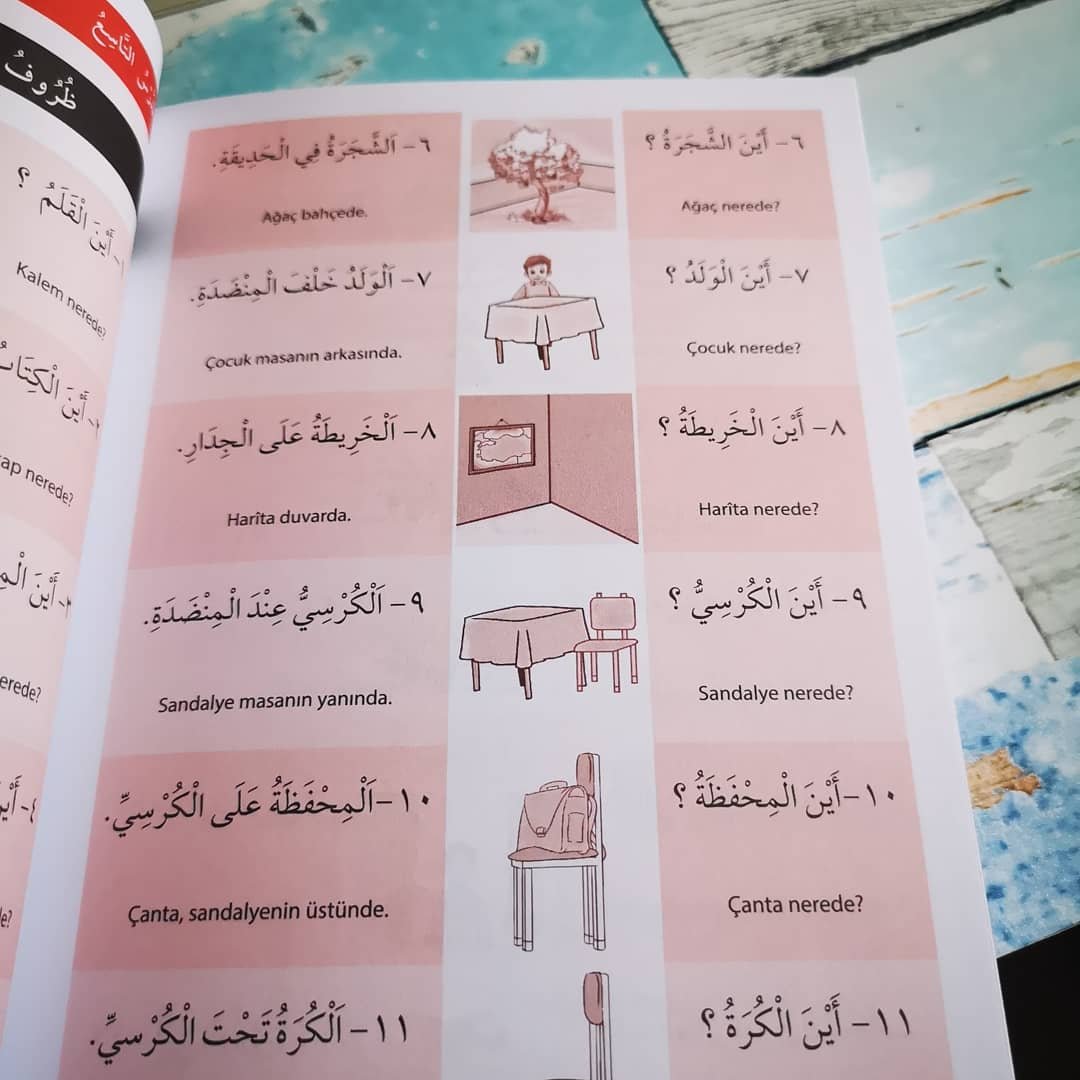 التَّاسِعُ
ظُرُوفُ
أَيْنَ الْقَلَمُ ؟
Kalem nerede?
nerede?
٦- أَيْنَ الشَّجَرَةُ ؟
Ağaç nerede?
٦- اَلشَّجَرَةُ فِي الْحَدِيقَةِ.
Ağaç bahçede.
٧- أَيْنَ الْوَلَدُ ؟
Çocuk nerede?
٧- اَلْوَلَدُ خَلْفَ الْمِنْضَدَةِ.
Çocuk masanın arkasında.
٨- أَيْنَ الْخَرِيطَةُ ؟
Harîta nerede?
٨- اَلْخَرِيطَةُ عَلَى الْجِدَارِ.
Harîta duvarda.
٩- أَيْنَ الْكُرْسِيُّ ؟
Sandalye nerede?
٩- اَلْكُرْسِيُّ عِنْدَ الْمِنْضَدَةِ.
Sandalye masanın yanında.
١٠- أَيْنَ الْمِحْفَظَةُ ؟
Çanta nerede?
١٠- اَلْمِحْفَظَةُ عَلَى الْكُرْسِيِّ.
Çanta, sandalyenin üstünde.
١١- أَيْنَ الْكُرَةُ ؟
١١- اَلْكُرَةُ تَحْتَ الْكُرْسيِّ.